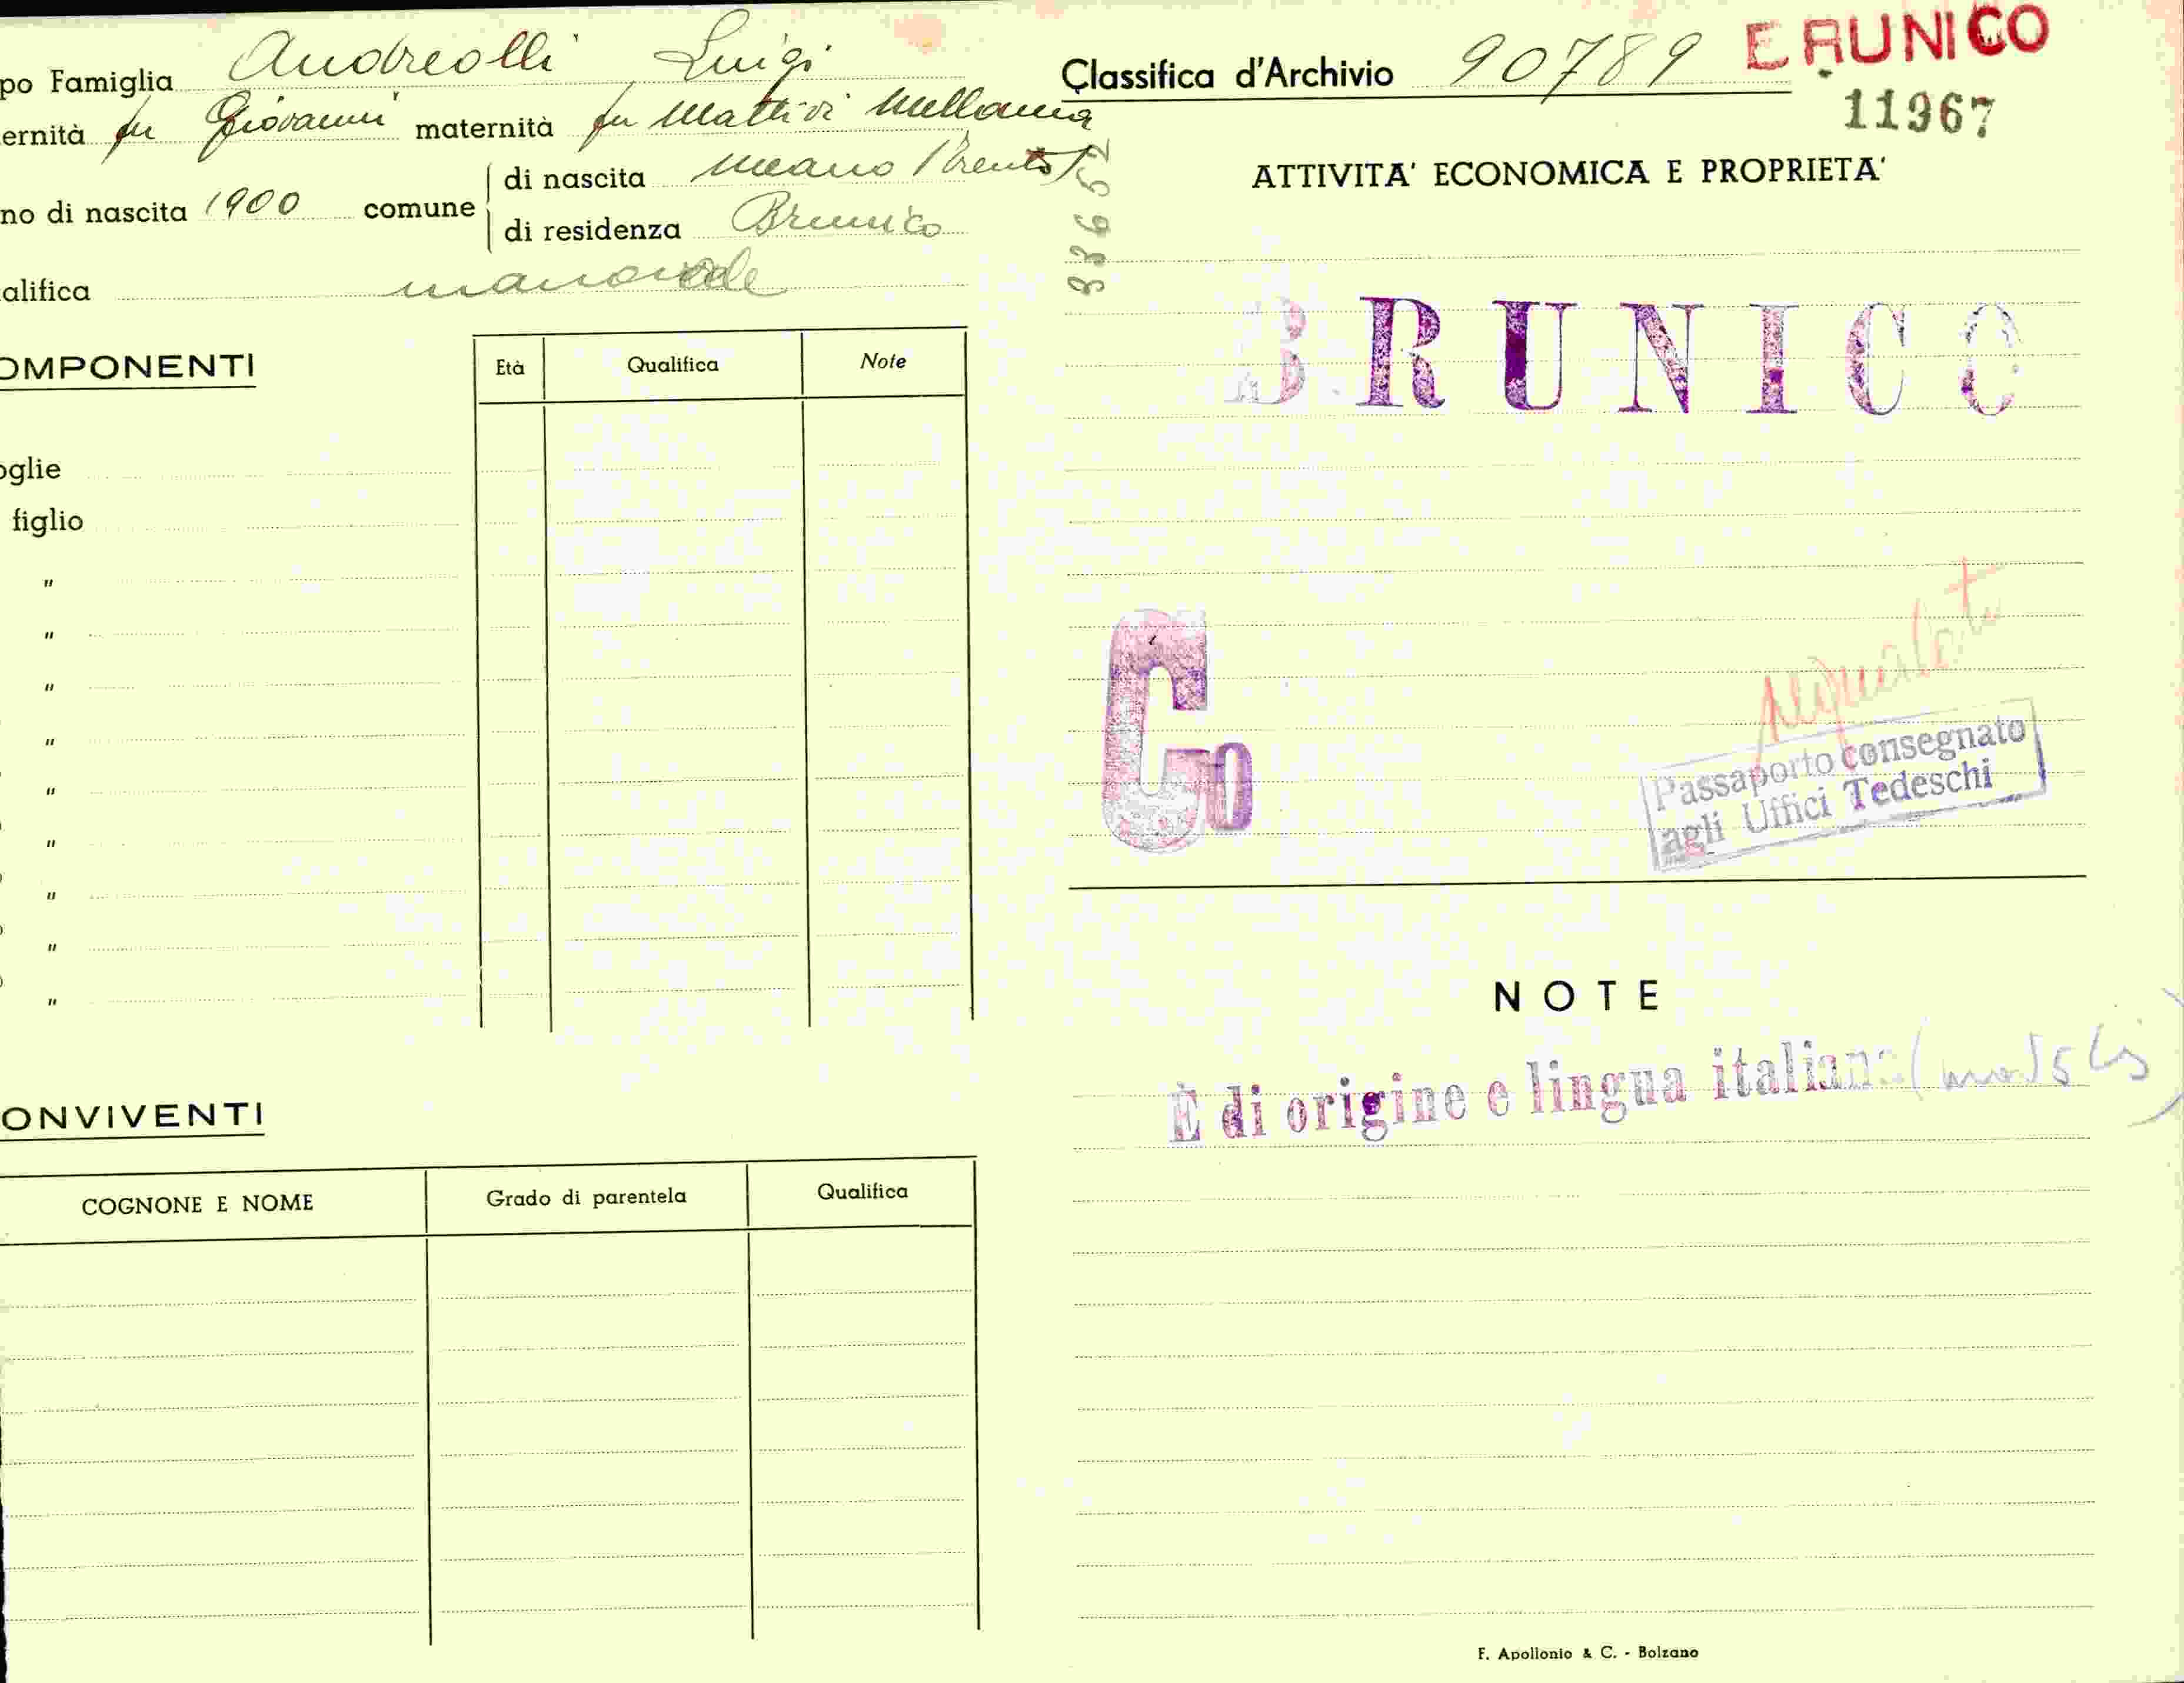 po Famiglia Andreolli Luigi
ernità fu Giovanni maternità fu Mattivi
no di nascita 1900 comune
di nascita Meano Trento
di residenza Brunico
alifica manovale
OMPONENTI
Età Qualifica Note
oglie
figlio
"
"
"
"
"
"
"
"
"
ONVIVENTI
COGNONE E NOME Grado di parentela Qualifica
Classifica d'Archivio 90789
BRUNICO
11967
336652
ATTIVITA' ECONOMICA E PROPRIETA'
BRUNICO
Co
Passaporto consegnato
agli Uffici Tedeschi
NOTE
È di origine e lingua italiana
F. Apollonio & C. - Bolzano